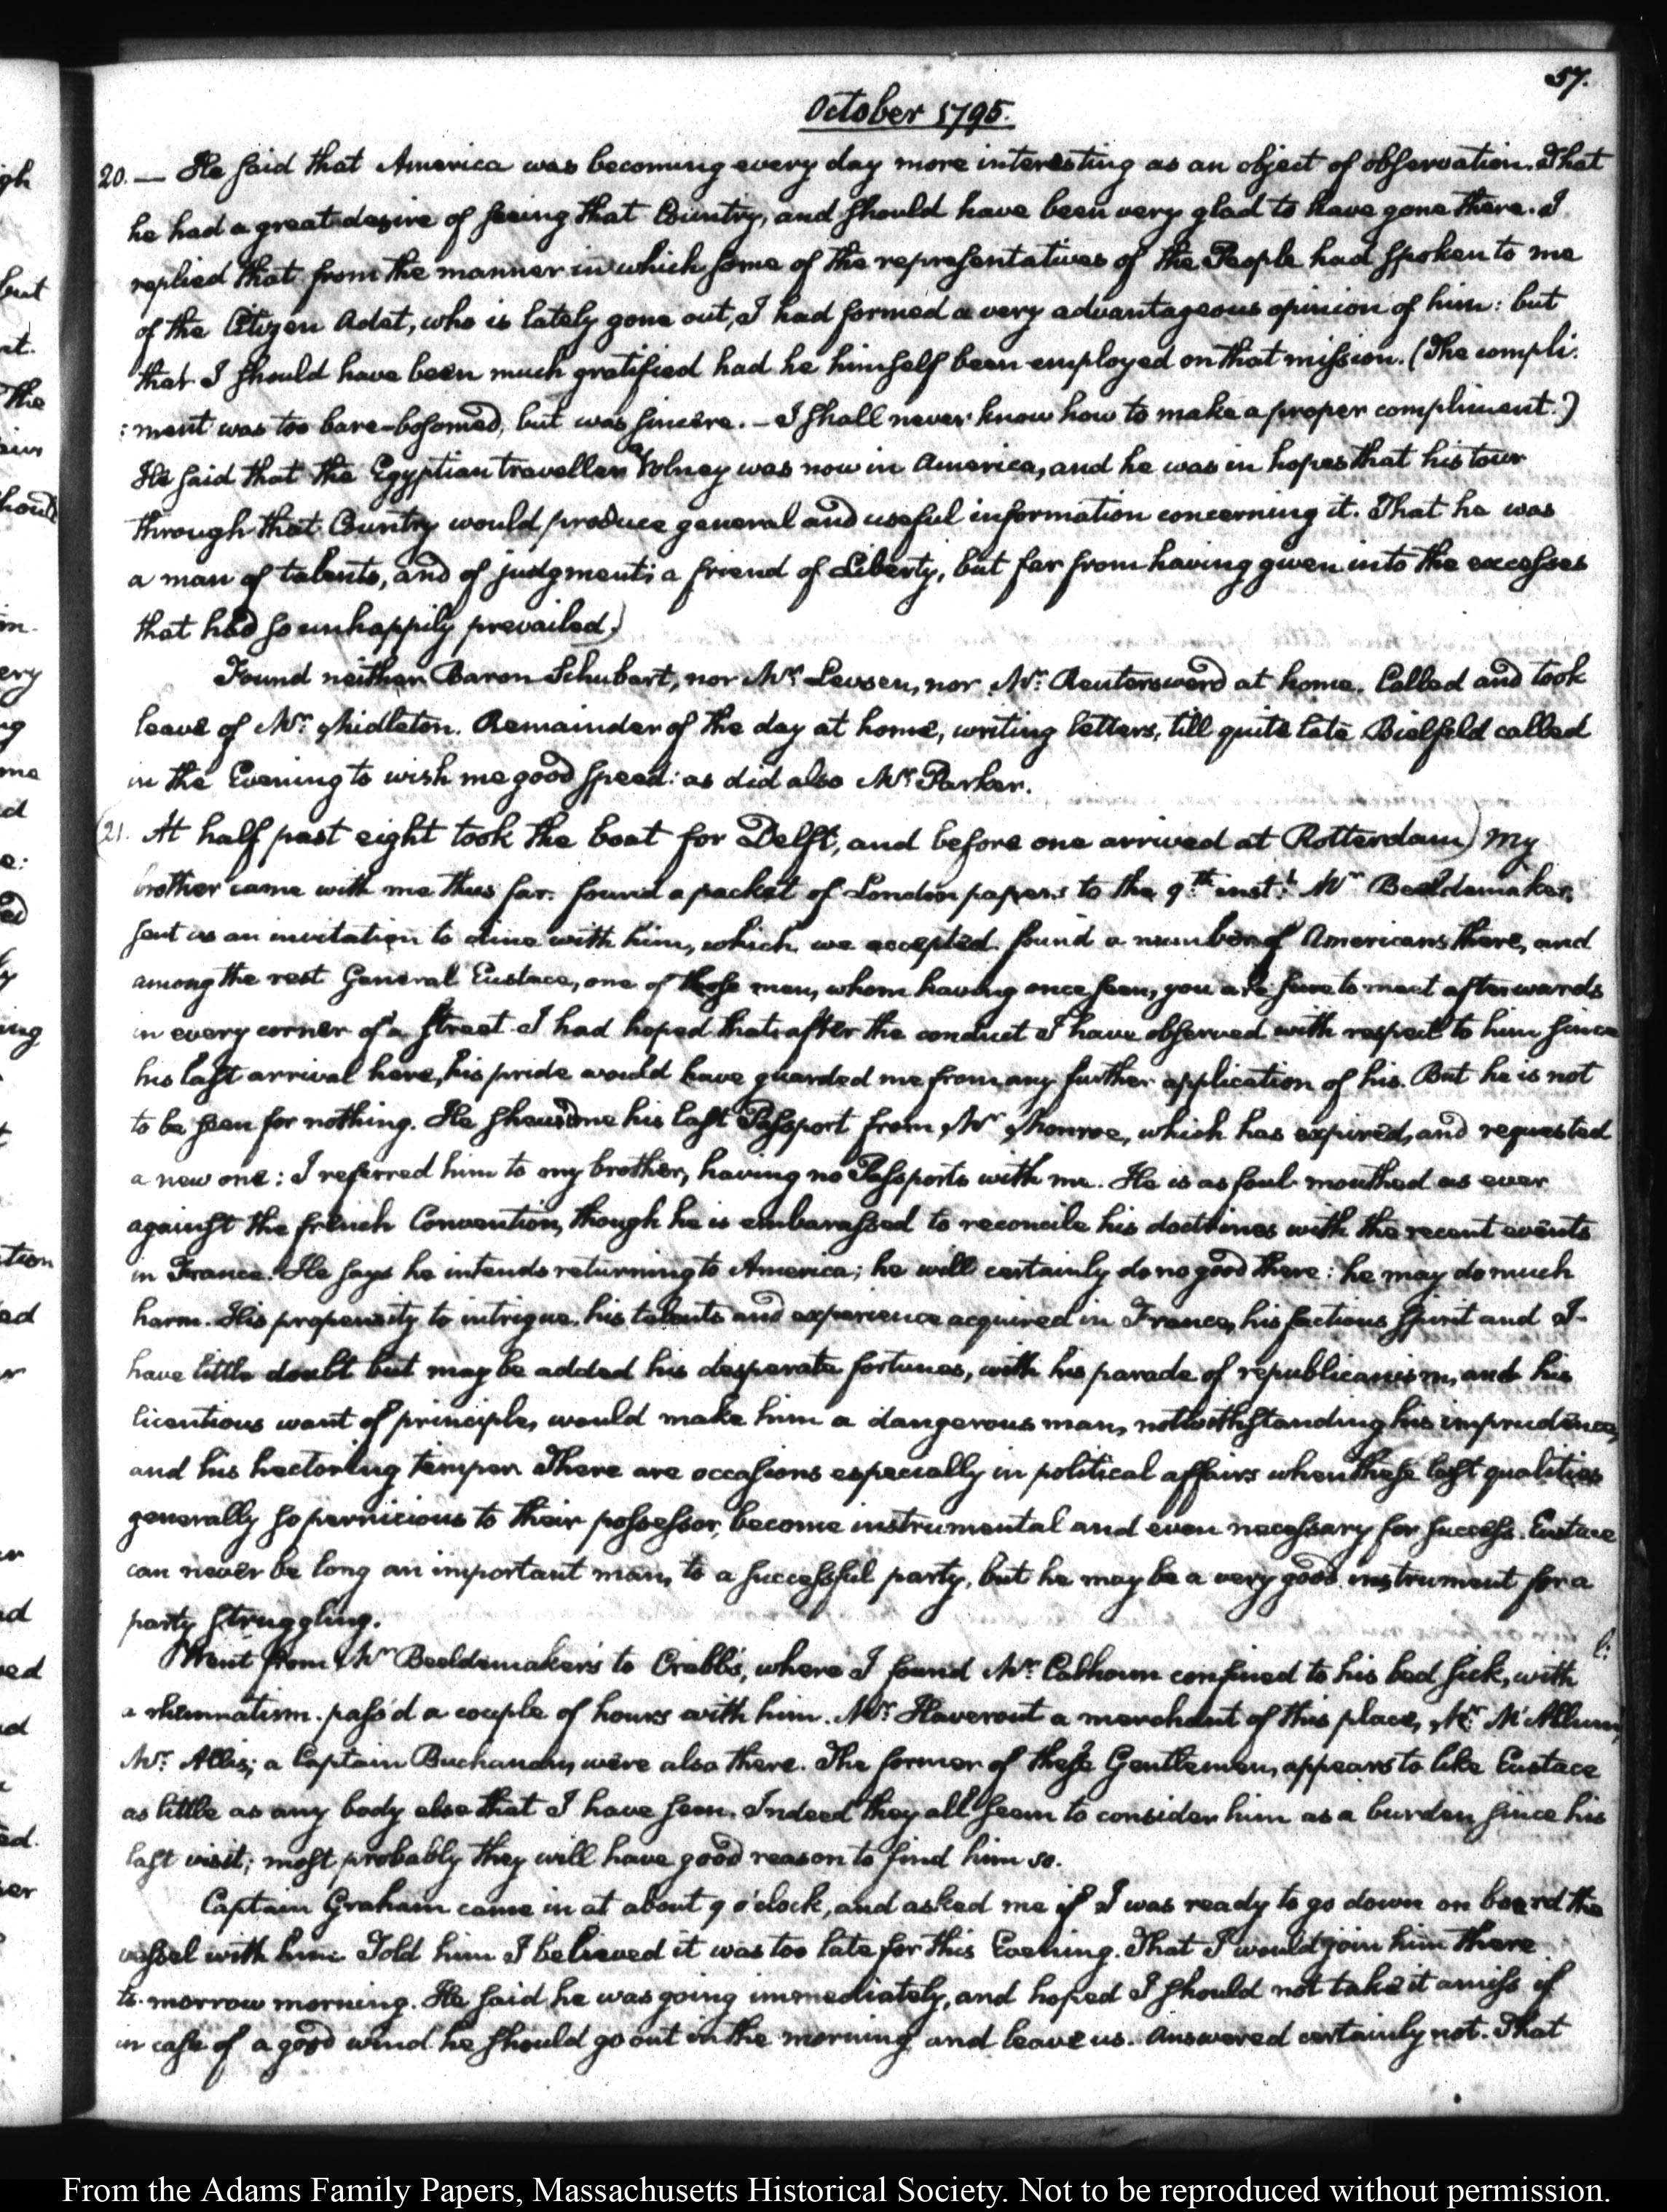 57.
October 1795.
20. — He said that America was becoming every day more interesting as an object of observation. That
he had a great desire of seeing that Country, and should have been very glad to have gone there. I
replied that from the manner in which some of the representatives of the People had spoken to me
of the Citizen Adet, who is lately gone out, I had formed a very advantageous opinion of him: but
that I should have been much gratified had he himself been employed on that mission. (The compli:
:ment was too bare-bosomed, but was sincere. — I shall never know how to make a proper compliment.)
He said that the Egyptian traveller Volney was now in America, and he was in hopes that his tour
through that Country would produce general and useful information concerning it. That he was
a man of talents, and of judgment; a friend of Liberty, but far from having given into the excesses
that had so unhappily prevailed.)
Found neither Baron Schubart, nor Mr. Levsen, nor Mr. Reutersward at home. Called and took
leave of Mr. Midleton. Remainder of the day at home, writing letters, till quite late Bielfeld called
in the Evening to wish me good speed: as did also Mr. Parker.
(21. At half past eight took the boat for Delft, and before one arrived at Rotterdam) My
brother came with me thus far. found a packet of London papers to the 9th. inst. Mr. Beeldemaker,
sent us an invitation to dine with him, which we accepted. found a number of Americans there, and
among the rest General Eustace, one of those men, whom having once seen, you are sure to meet afterwards
in every corner of a street. I had hoped that after the conduct I have observed with respect to him since
his last arrival here, his pride would have guarded me from any further application of his. But he is not
to be seen for nothing. He shewed me his last Passport from Mr. Monroe, which has expired, and requested
a new one: I referred him to my brother, having no Passports with me. He is as foul-mouthed as ever
against the french Convention, though he is embarassed to reconcile his doctrines with the recent events
in France. He says he intends returning to America; he will certainly do no good there: he may do much
harm. His propensity to intrigue, his talents and experience acquired in France, his factious spirit and I
have little doubt but may be added his desperate fortunes, with his parade of republicanism, and his
licentious want of principle, would make him a dangerous man, notwithstanding his imprudence,
and his hectoring temper. There are occasions especially in political affairs when these last qualities
generally so pernicious to their possessor, become instrumental and even necessary for success. Eustace
can never be long an important man, to a successful party, but he may be a very good instrument for a
party struggling.
Went from Mr. Beeldemaker's to Crabb's, where I found Mr. Calhoun confined to his bed sick, with
a rheumatism. pass'd a couple of hours with him. Mr. Haverout a merchant of this place, Mr. McAllum,
Mr. Allis; a Captain Buchanan, were also there. The former of these Gentlemen, appears to like Eustace
as little as any body else that I have seen. Indeed they all seem to consider him as a burden since his
last visit; most probably they will have good reason to find him so.
Captain Graham came in at about 9 o'clock, and asked me if I was ready to go down on board the
vessel with him. Told him I believed it was too late for this Evening. That I would join him there
to-morrow morning. He said he was going immediately, and hoped I should not take it amiss if
in case of a good wind he should go out in the morning and leave us. Answered certainly not. That
From the Adams Family Papers, Massachusetts Historical Society. Not to be reproduced without permission.